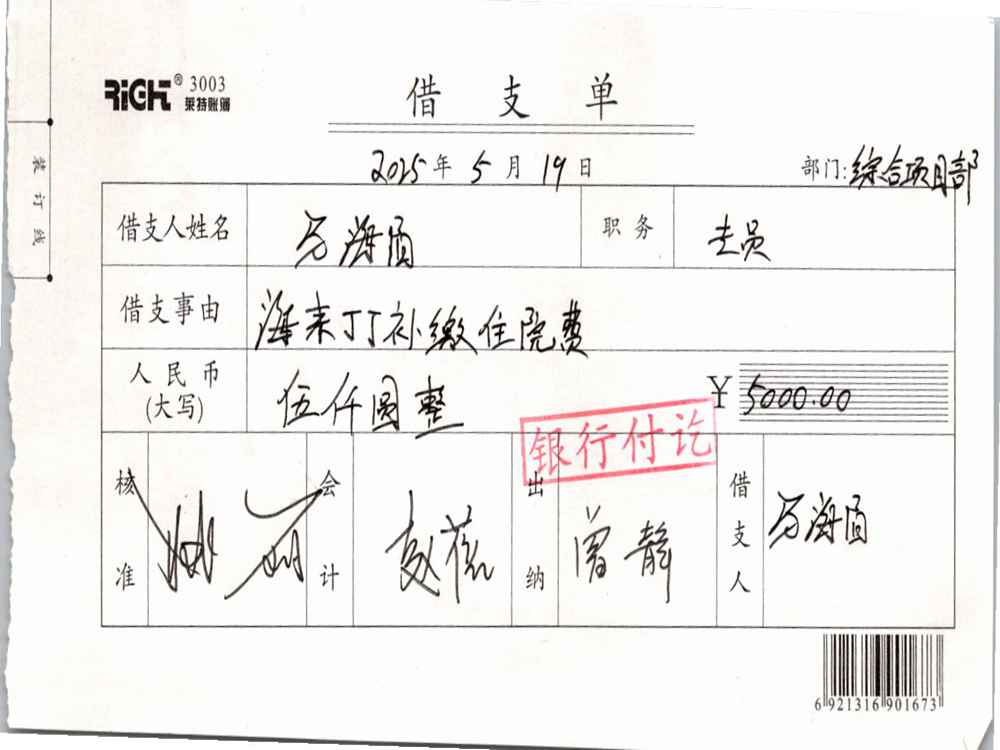 RiGHT® 3003
莱特账簿
借支单
2025年5月19日 部门:综合项目部
装订线
借支人姓名 马海 职务 员
借支事由 海来丁丁补缴住院费
人民币(大写) 伍仟圆整 ¥5000.00
银行付讫
核准 会计 出纳 曾静 借支人 马海
6 921316 901673